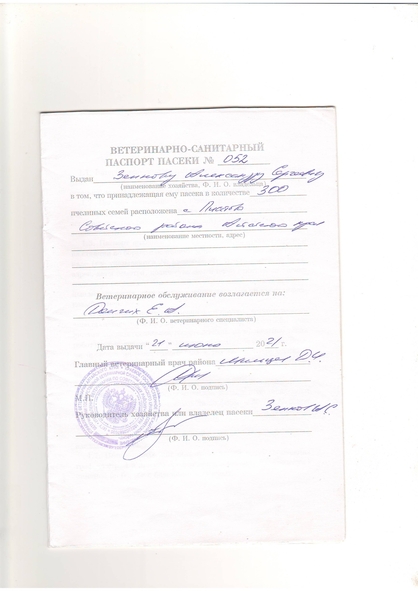 ВЕТЕРИНАРНО-САНИТАРНЫЙ
ПАСПОРТ ПАСЕКИ № 052
Выдан Александру Сергеевичу
(наименование хозяйства, Ф. И. О. владельца)
в том, что принадлежащая ему пасека в количестве 300
пчелиных семей расположена с.
Советского района Алтайского края
(наименование местности, адрес)
Ветеринарное обслуживание возлагается на:
(Ф. И. О. ветеринарного специалиста)
Дата выдачи "21" июня 2021г.
Главный ветеринарный врач района
(Ф. И. О. подпись)
М.П.
Руководитель хозяйства или владелец пасеки
(Ф. И. О. подпись)